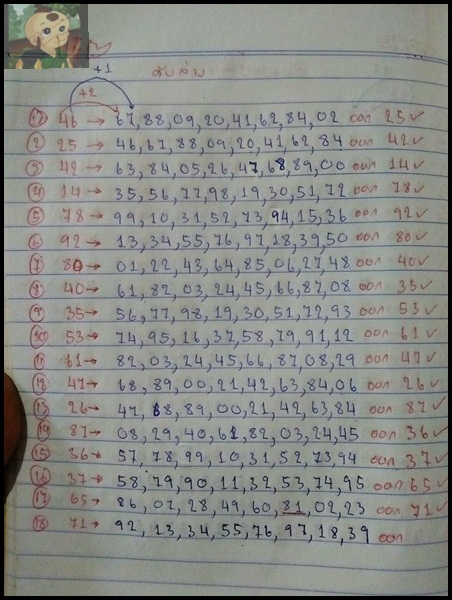 +1
+2
① 46 → 67,88,09,20,41,62,84,02 ออก 25 ✓
② 25 → 46,67,88,09,20,41,62,84 ออก 42 ✓
③ 42 → 63,84,05,26,47,68,89,00 ออก 14 ✓
④ 14 → 35,56,77,98,19,30,51,72 ออก 78 ✓
⑤ 78 → 99,10,31,52,73,94,15,36 ออก 92 ✓
⑥ 92 → 13,34,55,76,97,18,39,50 ออก 80 ✓
⑦ 80 → 01,22,43,64,85,06,27,48 ออก 40 ✓
⑧ 40 → 61,82,03,24,45,66,87,08 ออก 35 ✓
⑨ 35 → 56,77,98,19,30,51,72,93 ออก 53 ✓
⑩ 53 → 74,95,16,37,58,79,91,12 ออก 61 ✓
⑪ 61 → 82,03,24,45,66,87,08,29 ออก 47 ✓
⑫ 47 → 68,89,00,21,42,63,84,06 ออก 26 ✓
⑬ 26 → 47,68,89,00,21,42,63,84 ออก 87 ✓
⑭ 87 → 08,29,40,61,82,03,24,45 ออก 36 ✓
⑮ 36 → 57,78,99,10,31,52,73,94 ออก 37 ✓
⑯ 37 → 58,79,90,11,32,53,74,95 ออก 65 ✓
⑰ 65 → 86,07,28,49,60,81,02,23 ออก 71 ✓
⑱ 71 → 92,13,34,55,76,97,18,39 ออก